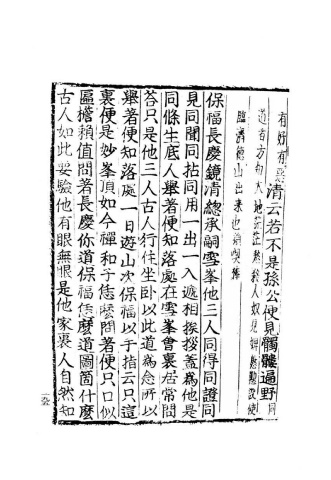 有好有惡清云若不是孫公便見髑髏遍野同
道者方知大地茫茫愁殺人奴見婢慇懃設使
臨濟德山出來也須喫棒
保福長慶鏡清總承嗣雪峯他三人同得同證同
見同聞同拈同用一出一入遞相挨拶蓋為他是
同條生底人舉著便知落處在雪峯會裏居常問
荅只是他三人古人行住坐卧以此道為念所以
舉著便知落處一日遊山次保福以手指云只這
裏便是妙峯頂如今禪和子恁麽問著便只口似
匾檐賴值問著長慶你道保福恁麽道圖箇什麽
古人如此要驗他有眼無眼是他家裏人自然知